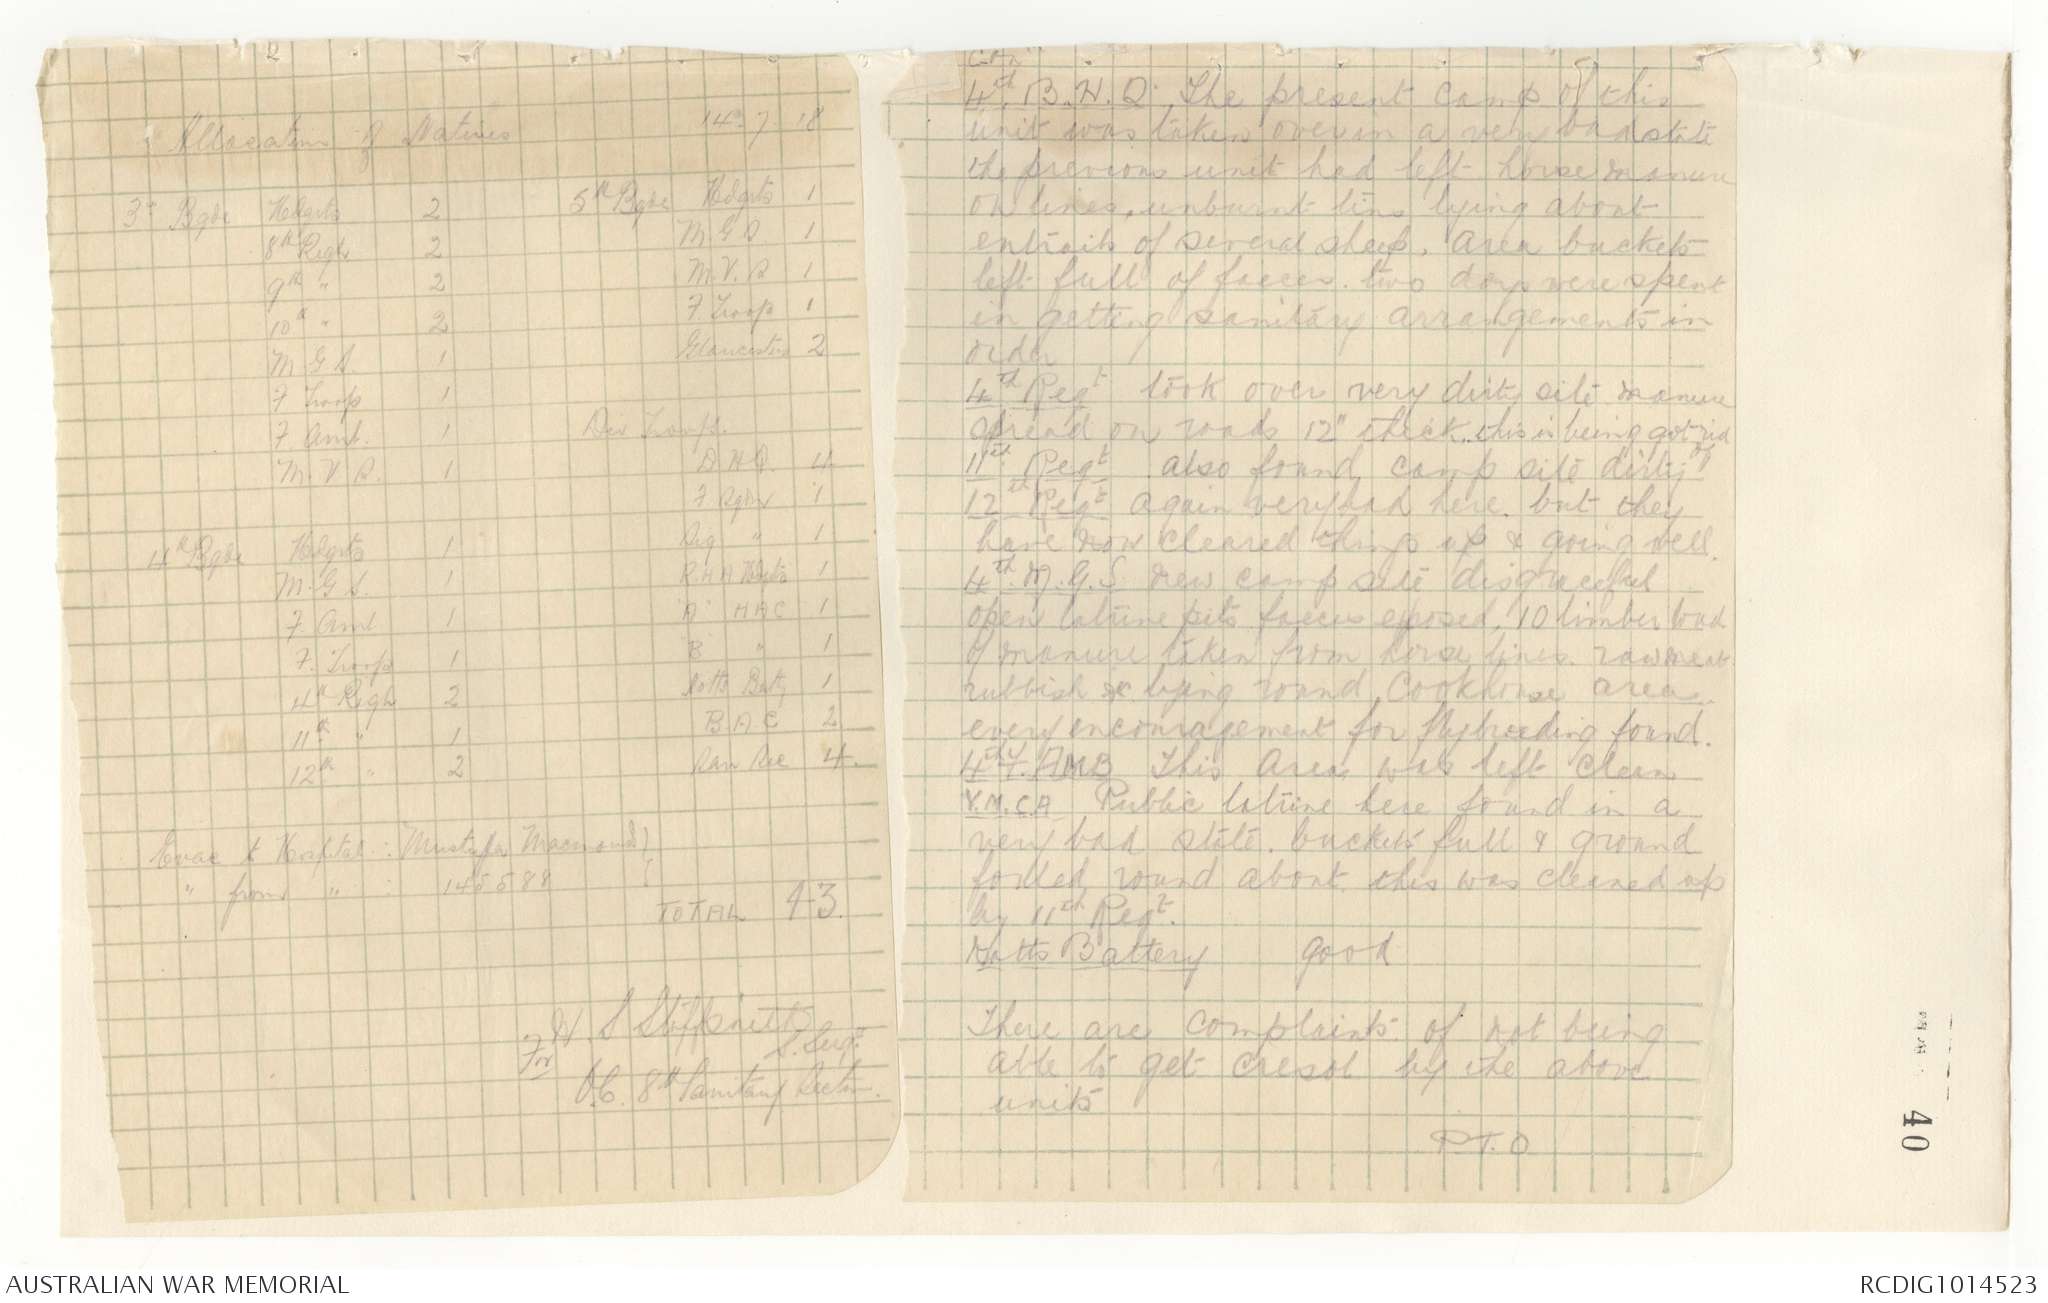 Allocation of Natives 14-7-18
3rd Bgde Hdqrts 2
8th Regt 2
9th " 2
10th " 2
M G S. 1
F Troop 1
F. Amb. 1
M. V. S. 1
4th Bgde Hdqrts 1
M. G S. 1
F. Amb 1
F. Troop 1
4th Regt 2
11th " 1
12th " 2
5th Bgde Hdqrts 1
M G S. 1
M. V. S 1
F. Troop 1
Gloucesters 2
Div Troops.
D. H. Q. 4
F. Sqdn 1
Sig " 1
R.H.A Hdqts 1
"A" HAC 1
"B" " 1
Notts Baty 1
B. A. C 2
Ran Rec 4.
Evac to Hospital : Mustafa
" from " : 145588
TOTAL 43.
For H. S
S. Sergt
O.C. 8th Sanitary Section.
4th B.H.Q. The present camp of this
unit was taken over in a very bad state
the previous unit had left horse manure
on lines, unburnt tins lying about
entrails of several sheep. Area buckets
left full of faeces. two days were spent
in getting sanitary arrangements in
order
4th Regt took over very dirty site manure
spread on roads 12" thick. this is being got rid of
11th Regt also found camp site dirty
12th Regt again very bad here. but they
have now cleared things up & going well.
4th M.G.S new camp site disgraceful
open latrine pits faeces exposed, 10 limber load
of manure taken from horse lines. raw meat
rubbish &c lying round Cookhouse area.
every encouragement for fly breeding found.
4th F. AMB This Area was left clean
Y.M.C.A Public latrine here found in a
very bad state. buckets full & ground
fouled round about. this was cleaned up
by 11th Regt.
Notts Battery good
There are complaints of not being
able to get cresol by the above
units
P.T.O
40
AUSTRALIAN WAR MEMORIAL
RCDIG1014523